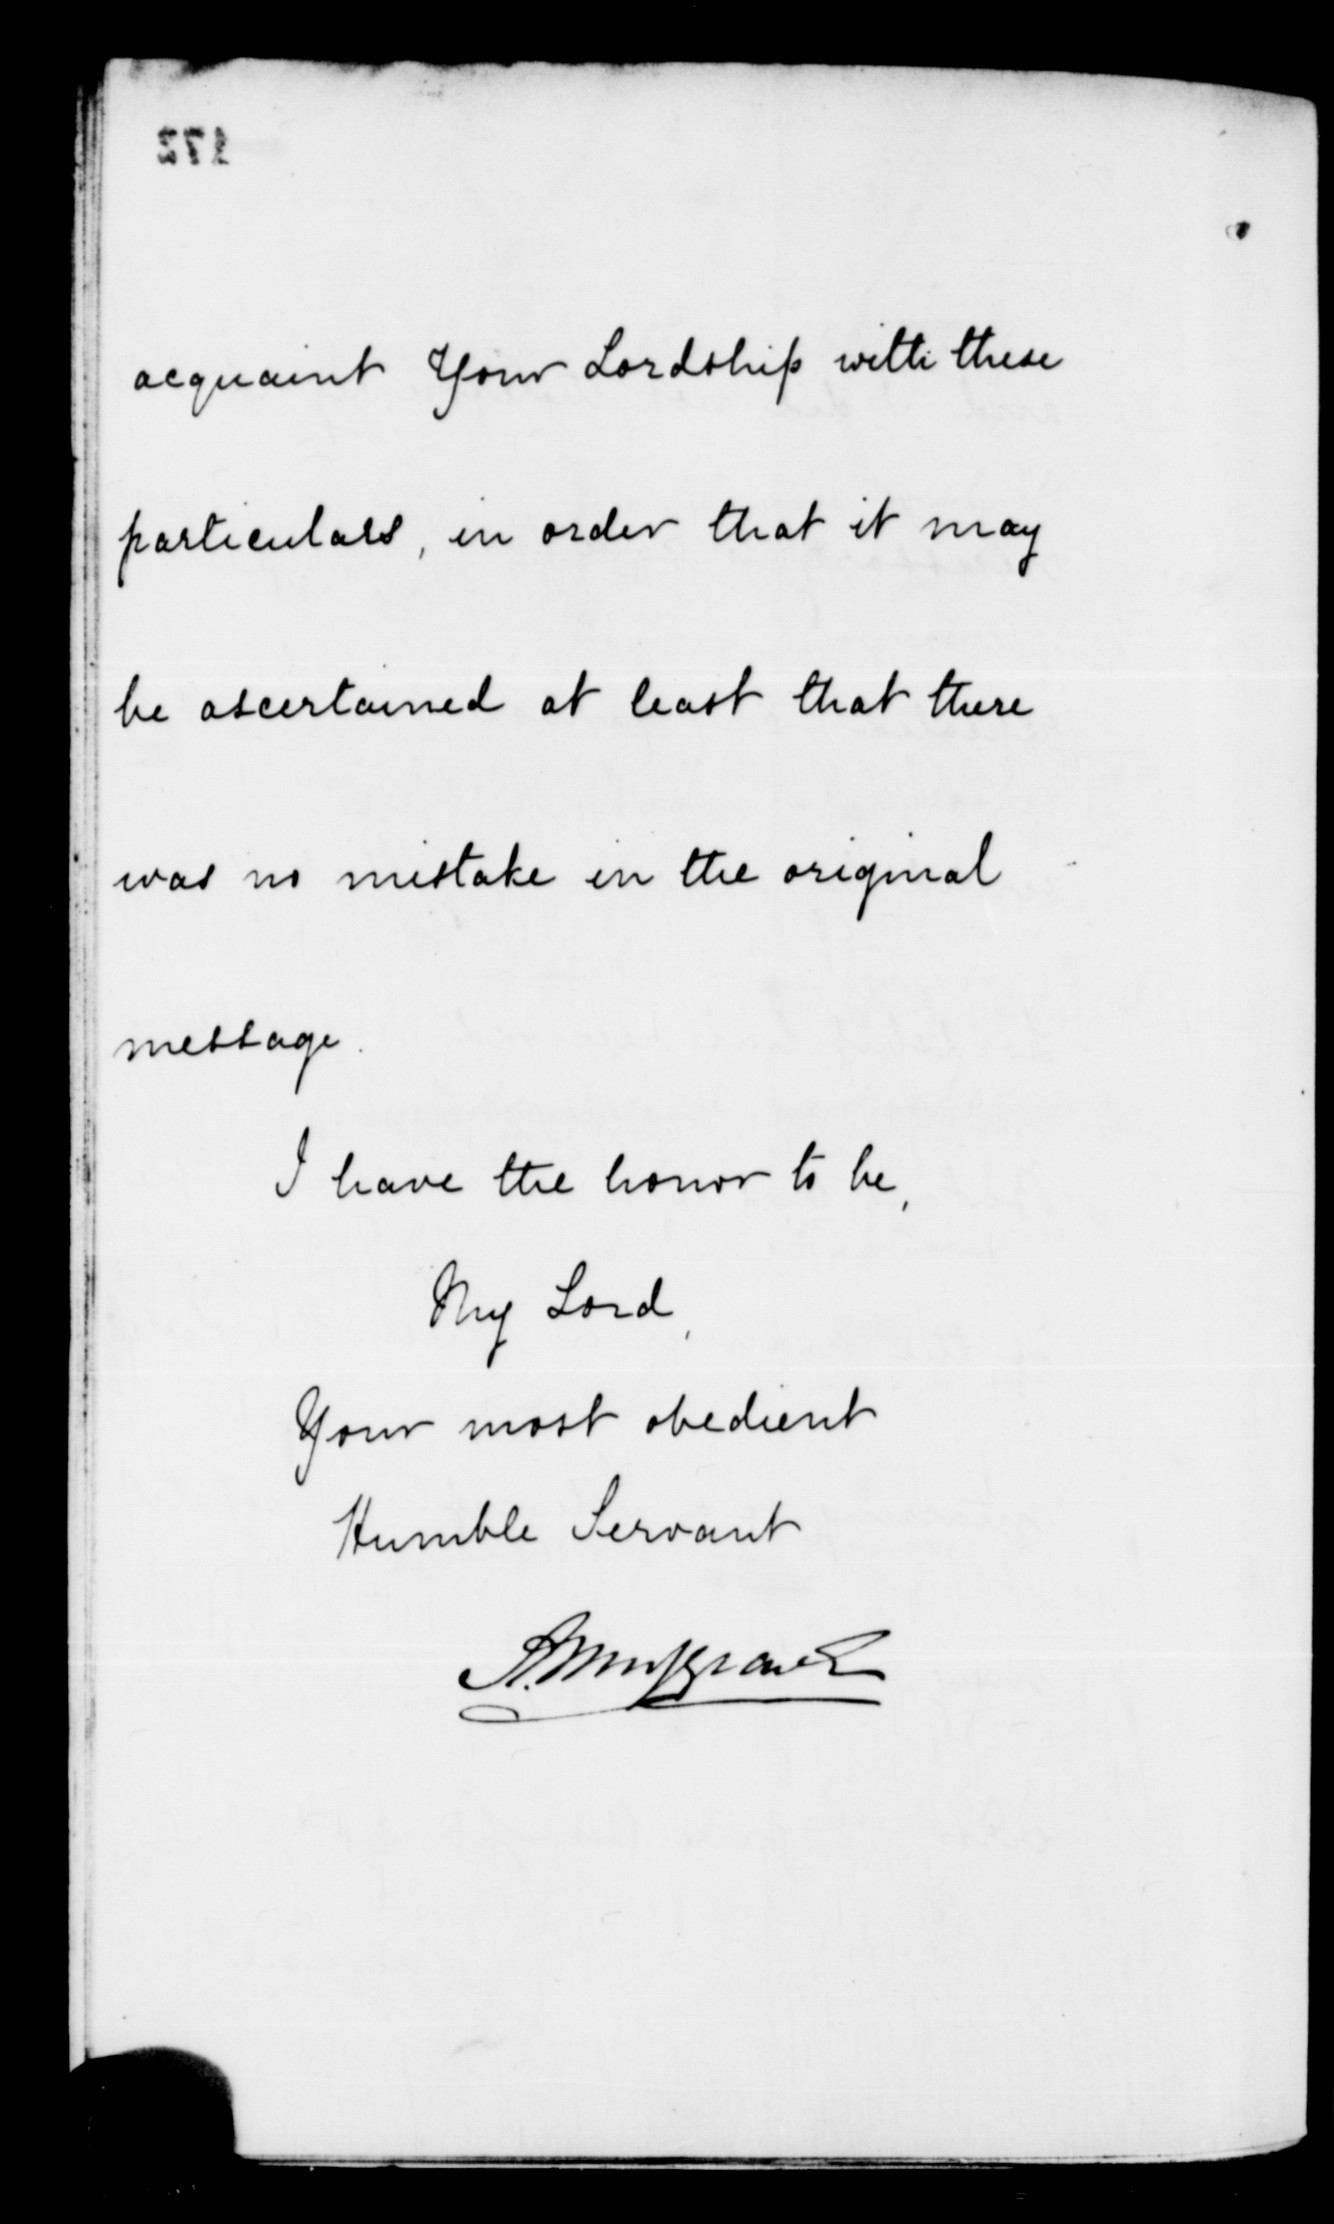 172
acquaint Your Lordship with these
particulars, in order that it may
be ascertained at least that there
was no mistake in the original
message.
I have the honor to be,
My Lord,
Your most obedient
Humble Servant
A. Musgrave